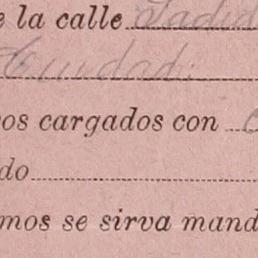 e la calle
os cargados con
do
mos se sirva mand